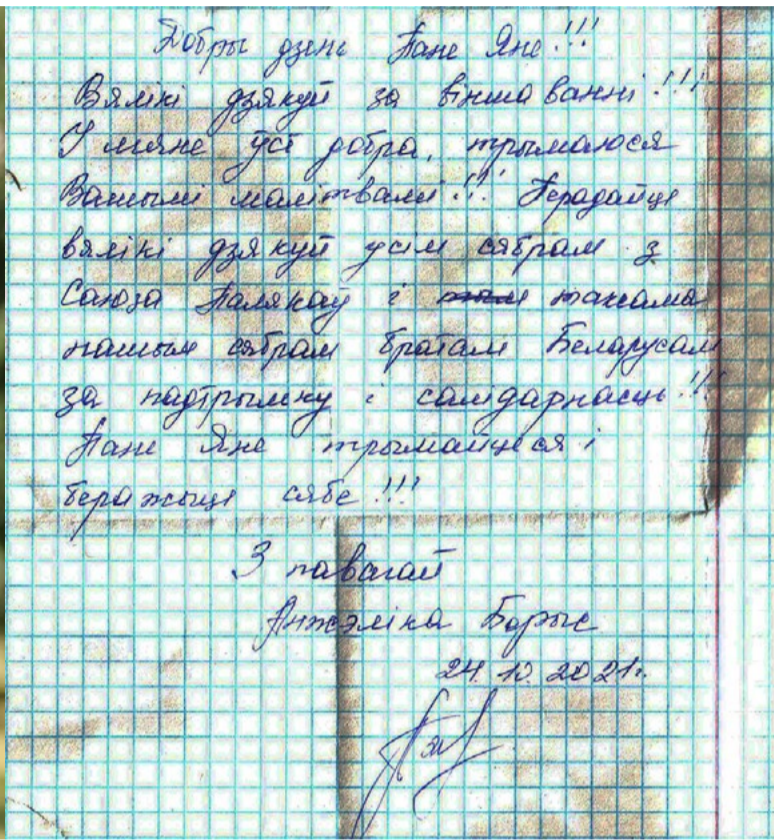 Добры дзень Пане Яне!!!
Вялікі дзякуй за віншаванні!!!
У мяне ўсё добра, трымаюся
Вашымі малітвамі!!! Перадайце
вялікі дзякуй усім сябрам з
Саюза Палякаў і таксама
нашым сябрам братам Беларусам
за падтрымку і салідарнасць!!!
Пане Яне трымайцеся і
беражыце сябе!!!
З павагай
Анжэліка Борыс
24.10.2021г.